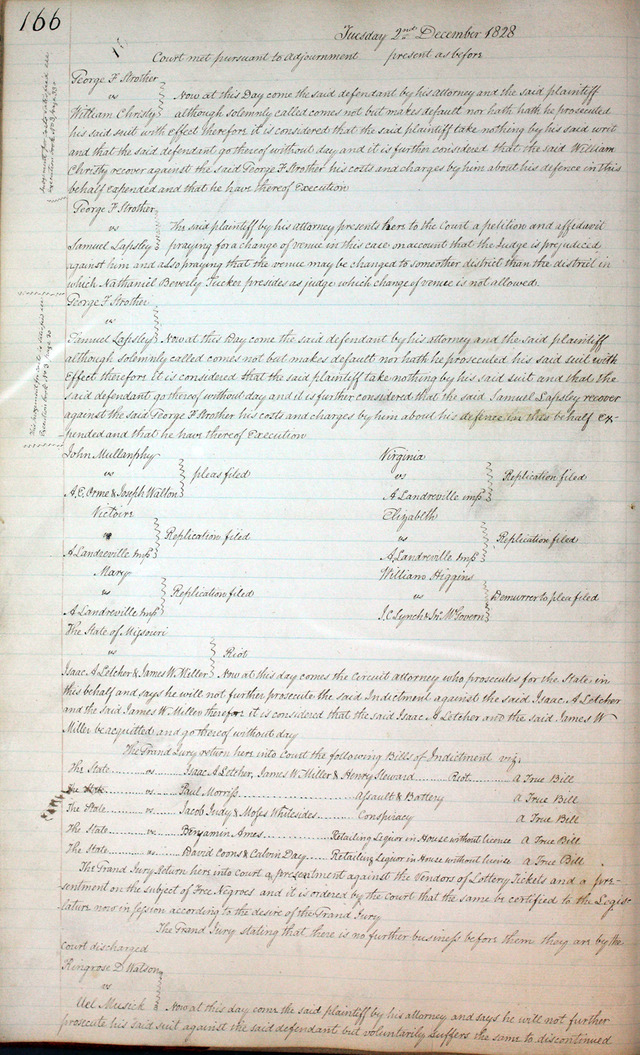 166
Tuesday 2nd December 1828
Court met pursuant to Adjournment present as before
George F Strother
vs
William Christy
Now at this Day come the said defendant by his attorney and the said plaintiff
although solemnly called comes not but makes default nor hath hath he prosecuted
his said suit with effect therefore it is considered that the said plaintiff take nothing by his said writ
and that the said defendant go thereof without day and it is further considered that the said William
Christy recover against the said George F Strother his costs and charges by him about his defence in this
behalf expended and that he have thereof Execution
George F Strother
vs
Samuel Lapsley
The said plaintiff by his attorney presents here to the Court a petition and affidavit
praying for a change of venue in this case on account that the Judge is prejudiced
against him and also praying that the venue may be changed to some other district than the district in
which Nathaniel Beverly Tucker presides as judge which change of venue is not allowed.
George F Strother
vs
Samuel Lapsley
Now at this Day come the said defendant by his attorney and the said plaintiff
although solemnly called comes not but makes default nor hath he prosecuted his said suit with
Effect therefore it is considered that the said plaintiff take nothing by his said suit and that the
said defendant go thereof without day and it is further considered that the said Samuel Lapsley recover
against the said George F Strother his costs and charges by him about his defence in this behalf ex-
pended and that he have thereof Execution
John Mullanphy
vs
A. C. Orme & Joseph Walton
pleas filed
Virginia
vs
A Landreville imps
Replication filed
Victoire
vs
A Landreville Imps
Replication filed
Elizabeth
vs
A Landreville Imps
Replication filed
Mary
vs
A Landreville Imps
Replication filed
William Higgins
vs
J. C. Lynch & Jno McGovern
Demurrer to plea filed
The State of Missouri
vs
Isaac A Letcher & James W. Miller
Riot
Now at this day comes the Circuit attorney who prosecutes for the State in
this behalf and says he will not further prosecute the said Indictment against the said Isaac A Letcher
and the said James W. Miller therefore it is considered that the said Isaac A Letcher and the said James W
Miller be acquitted and go thereof without day
The Grand Jury return here into Court the following Bills of Indictment viz;
The State vs Isaac A Letcher, James W Miller & Henry Steward Riot A True Bill
The State vs Paul Morriss Assault & Battery A True Bill
The State vs Jacob Judy & Moses Whitesides Conspiracy A True Bill
The State vs Benjamin Ames Retailing Liquor in House without licence A True Bill
The State vs David Coons & Calvin Day Retailing Liquor in House without licence A True Bill
The Grand Jury return here into Court a presentment against the Vendors of Lottery Tickets and a pre-
sentment on the subject of Free Negroes and it is ordered by the Court that the same be certified to the Legis-
lature now in Session according to the desire of the Grand Jury
The Grand Jury stating that there is no further business before them they are by the
court discharged
Ringrose D Watson
vs
Uel Musick
Now at this day come the said plaintiff by his attorney and says he will not further
prosecute his said suit against the said defendant but voluntarily suffers the same to discontinued